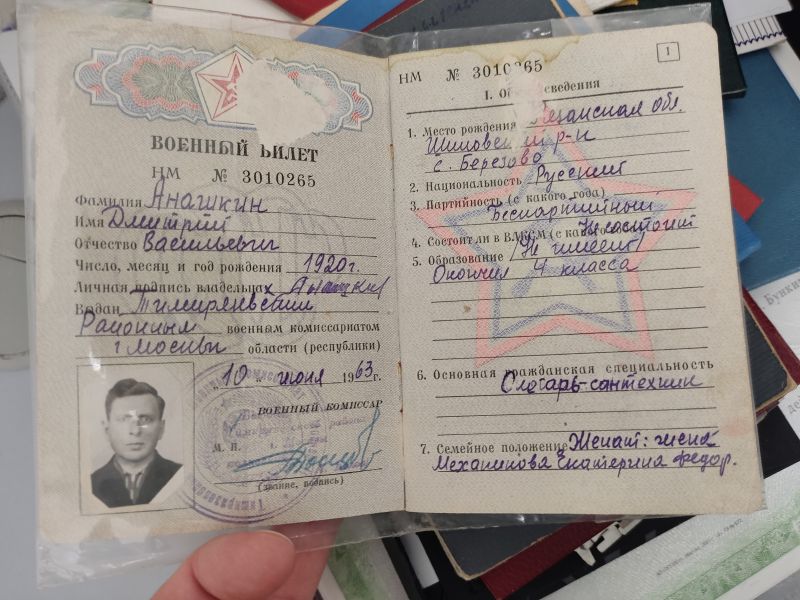 ВОЕННЫЙ БИЛЕТ
НМ № 3010265
Фамилия Анашкин
Имя Дмитрий
Отчество Васильевич
Число, месяц и год рождения 1920г.
Личная подпись владельца Анашкин
Выдан Тимирязевским
Районным военным комиссариатом
г. Москвы области (республики)
"10" июня 1963 г.
ВОЕННЫЙ КОМИССАР
М. П.
(звание, подпись)
НМ № 3010265
1
I. Общие сведения
1. Место рождения Рязанская обл.
Шиловский р-н
с. Березово
2. Национальность Русский
3. Партийность (с какого года)
Беспартийный
4. Состоит ли в ВЛКСМ (с какого Не состоит
5. Образование Не имеет
Окончил 4 класса
6. Основная гражданская специальность
Слесарь-сантехник
7. Семейное положение Женат: жена
Механикова Екатерина Федор.